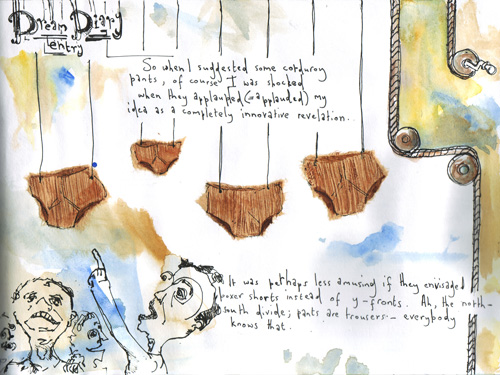 Dream Diary
entry
So when I suggested some corduroy
pants, of course I was shocked
when they applauded (or applauded) my
idea as a completely innovative revelation...
It was perhaps less amusing if they envisaged
boxer shorts instead of y-fronts. Ah, the north-
south divide; pants are trousers - everybody
knows that.